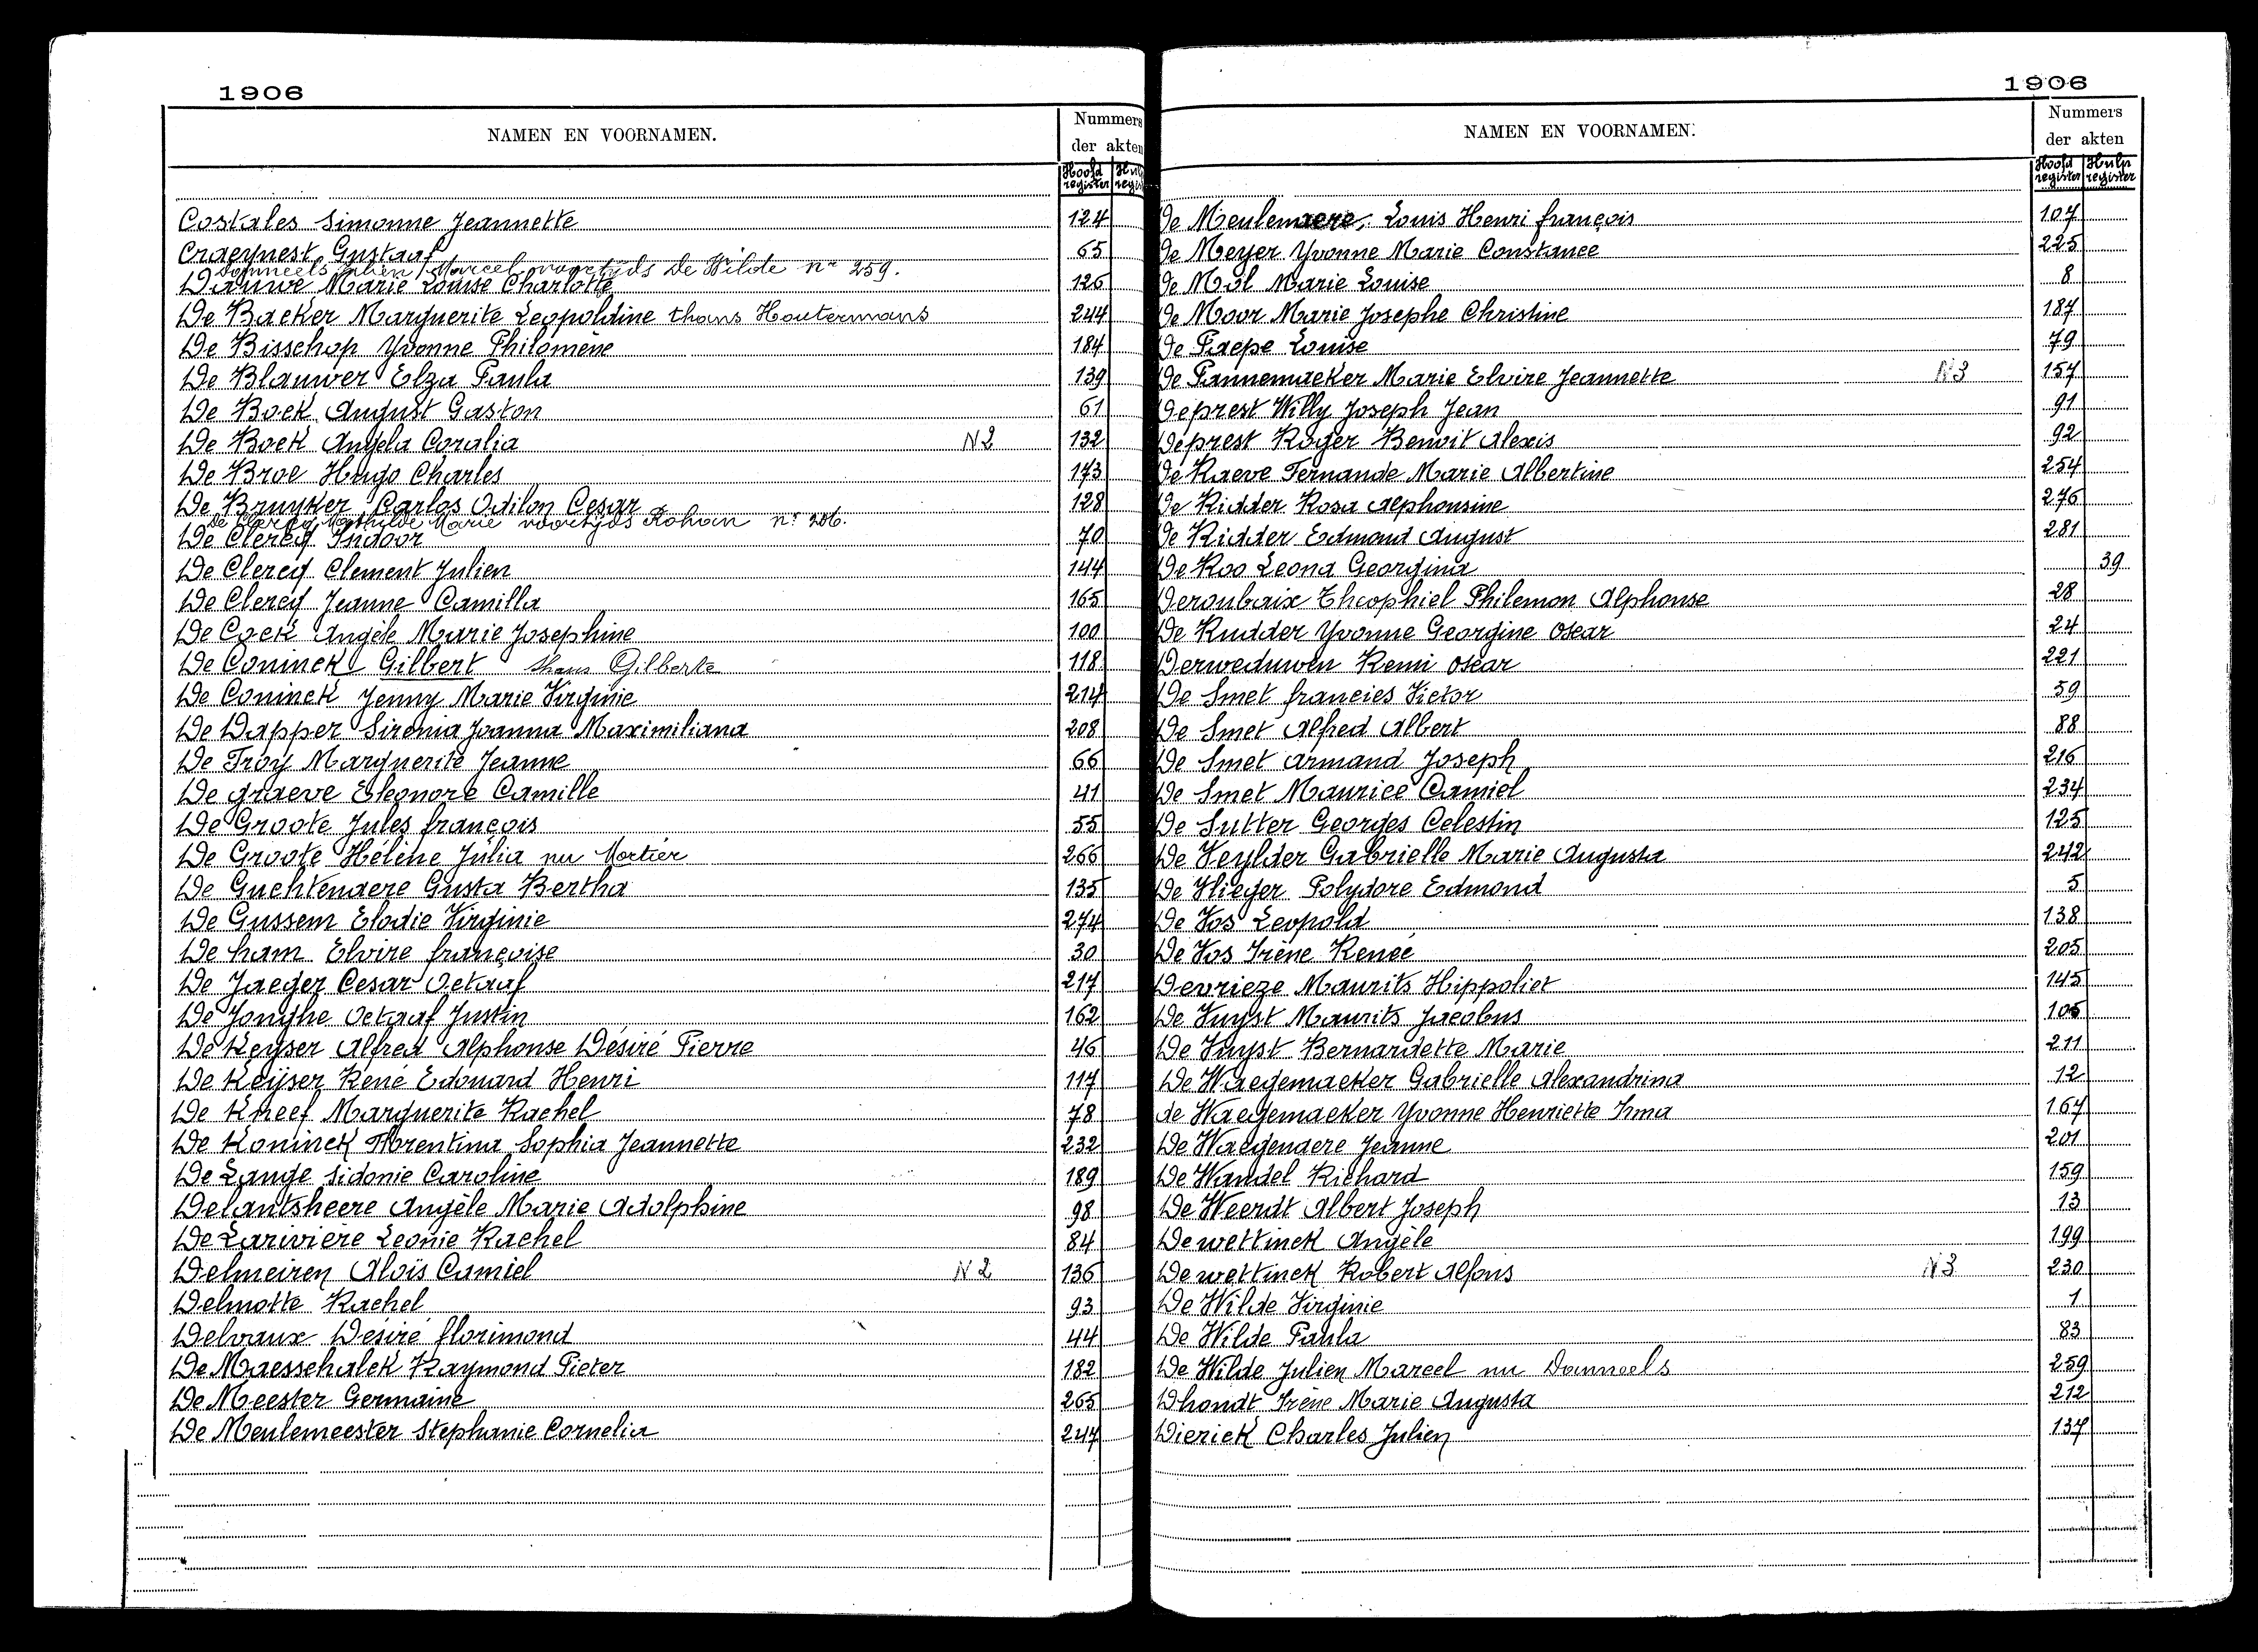 1906
NAMEN EN VOORNAMEN.
Nummers
der akten
Hoofd register
Costales Simonne Jeannette 124
Craeynest Gustaaf 65
Danneels Julien Marcel voortijds De Wilde nr 259.
Dauwe Marie Louise Charlotte 126
De Backer Marguerite Leopoldine thans Houtermans 244
De Bisschop Yvonne Philomène 184
De Blauwer Elza Paula 139
De Bock August Gaston 61
De Bock Angela Coralia N2 132
De Broe Hugo Charles 173
De Bruyker Carlos Odilon Cesar 128
De Clercq Mathilde Marie voortijds Rohan nr 206.
De Clercq Isidoor 70
De Clercq Clement Julien 144
De Clercq Jeanne Camilla 165
De Cock Angèle Marie Josephine 100
De Coninck Gilbert thans Gilberte 118
De Coninck Jenny Marie Virginie 214
De Dapper Sirenia Joanna Maximiliana 208
De Froy Marguerite Jeanne 66
De graeve Eleonore Camille 41
De Groote Jules françois 55
De Groote Hélène Julia nu Mortier 266
De Guchtenaere Gusta Bertha 135
De Gussem Elodie Virginie 274
De ham Elvire françoise 30
De Jaeger Cesar Octaaf 217
De Jonghe Octaaf Justin 162
De Keyser Alfred Alphonse Désiré Pierre 46
De Keyser René Edouard Henri 117
De Kneef Marguerite Rachel 78
De Koninck Florentina Sophia Jeannette 232
De Lange Sidonie Caroline 189
Delantsheere Angèle Marie Adolphine 98
De Larivière Leonie Rachel 84
Delmeiren Aloïs Camiel N2 136
Delmotte Rachel 93
Delvaux Désiré florimond 44
De Maesschalck Raymond Pieter 182
De Meester Germaine 265
De Meulemeester Stephanie Cornelia 247
1906
NAMEN EN VOORNAMEN.
Nummers
der akten
Hoofd register Hulp register
De Meulenaere, Louis Henri françois 107
De Meyer Yvonne Marie Constance 225
De Mol Marie Louise 8
De Moor Marie Josephe Christine 187
De Paepe Louise 79
De Pannemaeker Marie Elvire Jeannette N3 157
Deprest Willy Joseph Jean 91
Deprest Roger Benoit Alexis 92
De Raeve Fernande Marie Albertine 254
De Ridder Rosa Alphonsine 276
De Ridder Edmond August 281
De Roo Leona Georgina 39
Deroubaix Theophiel Philemon Alphonse 28
De Rudder Yvonne Georgine Oscar 24
Derweduwen Remi Oscar 221
De Smet francies Victor 59
De Smet Alfred Albert 88
De Smet Armand Joseph 216
De Smet Maurice Camiel 234
De Sutter Georges Celestin 125
De Veylder Gabrielle Marie Augusta 242
De Vlieger Polydore Edmond 5
De Vos Leopold 138
De Vos Irène Reneé 205
Devrieze Maurits Hippoliet 145
De Vuyst Maurits Jacobus 106
De Vuyst Bernardette Marie 211
De Waegemaeker Gabrielle Alexandrina 12
de Waegemaeker Yvonne Henriette Irma 167
De Waegenaere Jeanne 201
De Wandel Richard 159
De Weerdt Albert Joseph 13
De wettinck Angèle 199
De wettinck Robert Alfons N3 230
De Wilde Virginie 1
De Wilde Paula 83
De Wilde Julien Marcel nu Danneels 259
Dhondt Irène Marie Augusta 212
Dierick Charles Julien 137